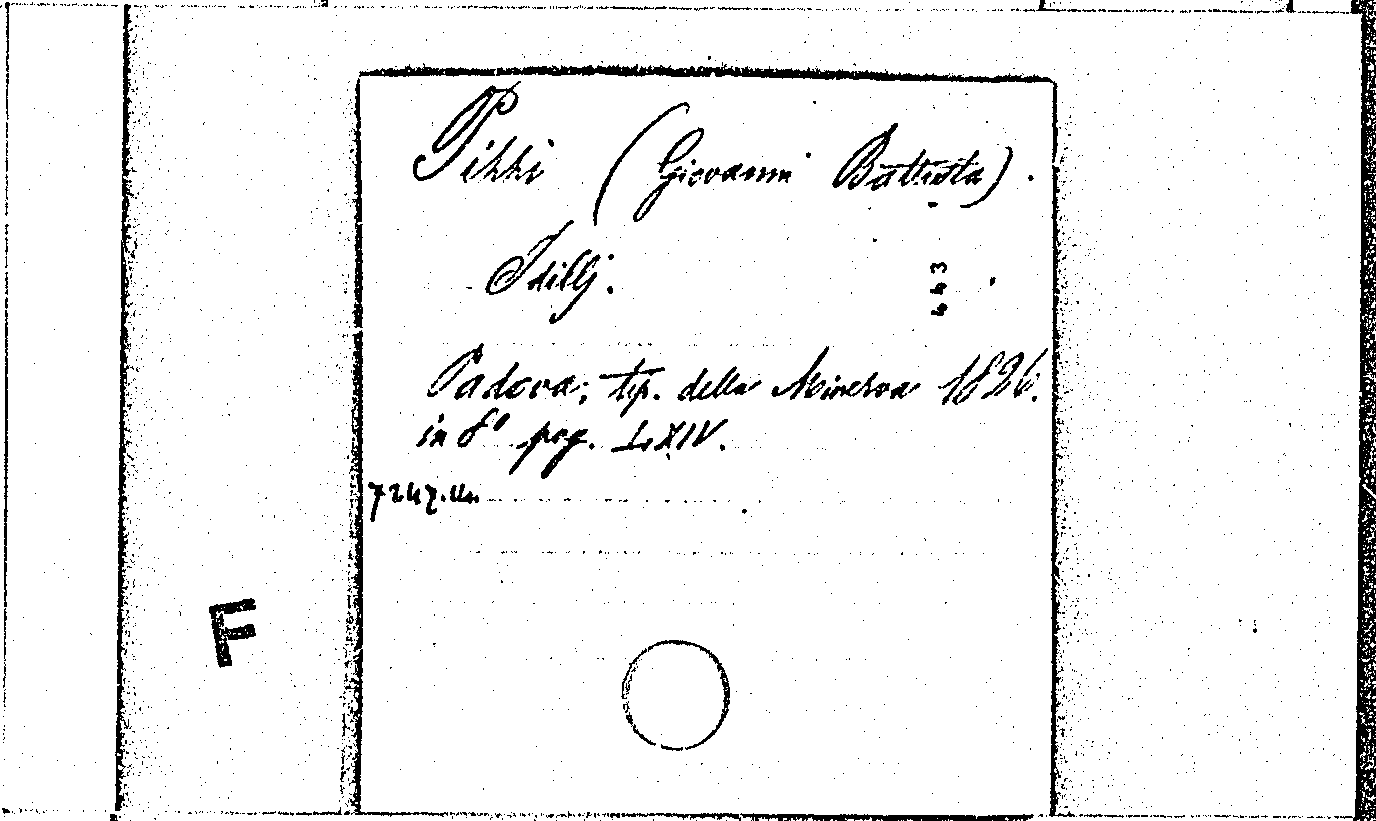 Pizzi (Giovanni Battista).
Idillj.
443
Padova; tip. della Minerva 1826.
in 8° pag. LXIV.
7247.
F